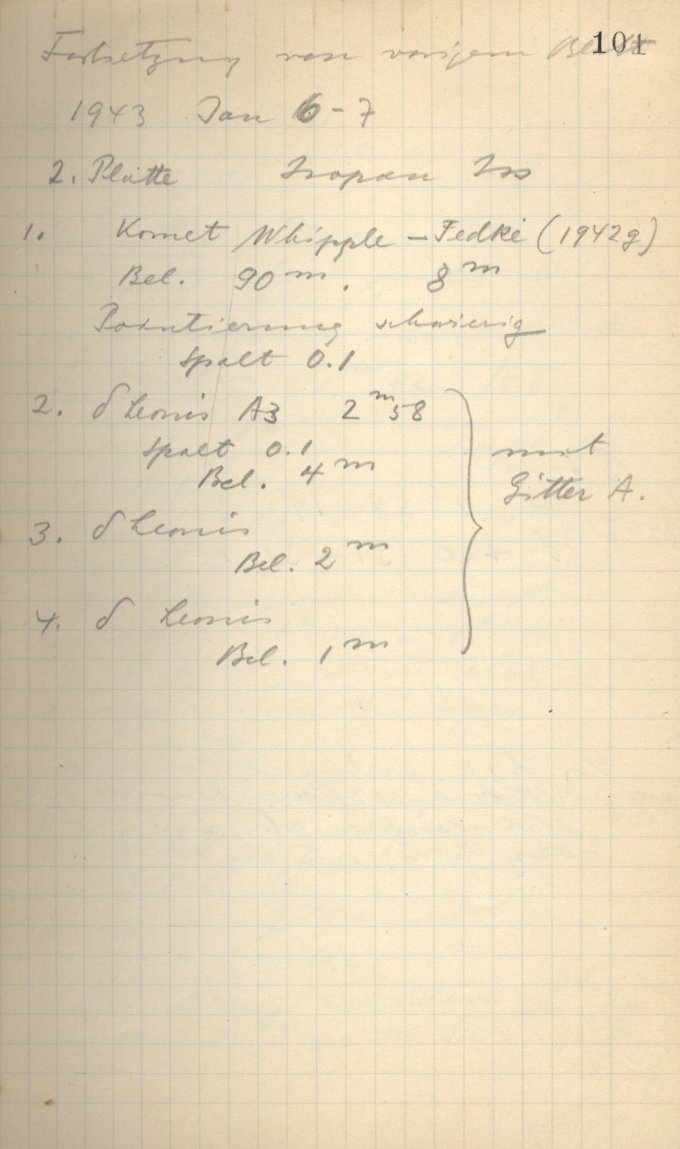 101
Fortsetzung von vorigem Blatt
1943 Jan 6-7
2. Platte Isopan Iss
1. Komet Whipple - Fedke (1942g)
Bel. 90 m. 8 m
Pointierung schwierig
Spalt 0.1
2. δ Leonis A3 2 m 58
Spalt 0.1
Bel. 4 m
mit
Gitter A.
3. δ Leonis
Bel. 2 m
4. δ Leonis
Bel. 1 m